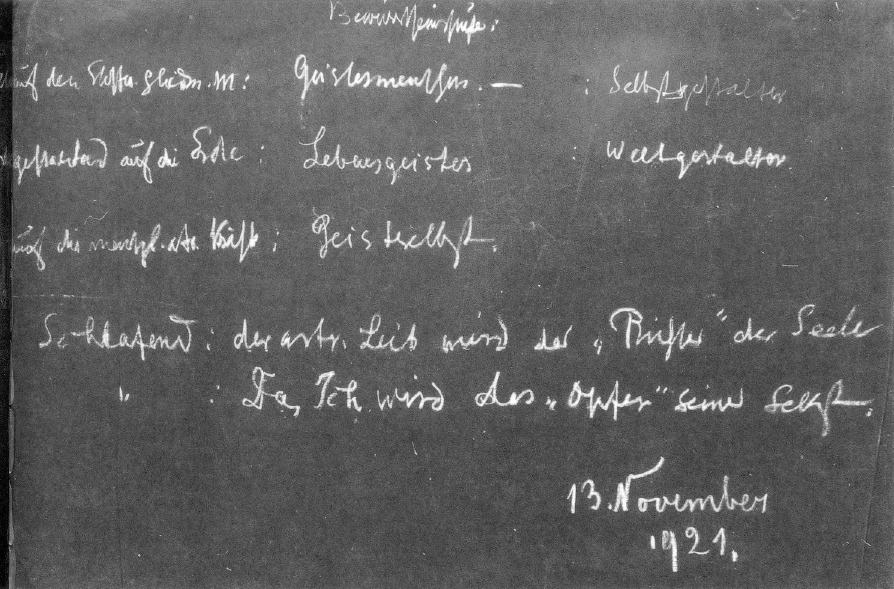 Bewusstseinsstufe:
auf den M: Geistesmenschen. — : Selbstgestalter
auf die Erde: Lebensgeistes : Weltgestalter
auf die Kräfte: Geistselbst.
Schlafend: der astr. Leib wird der „Richter“ der Seele
" : Das Ich wird das „Opfer“ seiner Selbst.
13. November
1921.